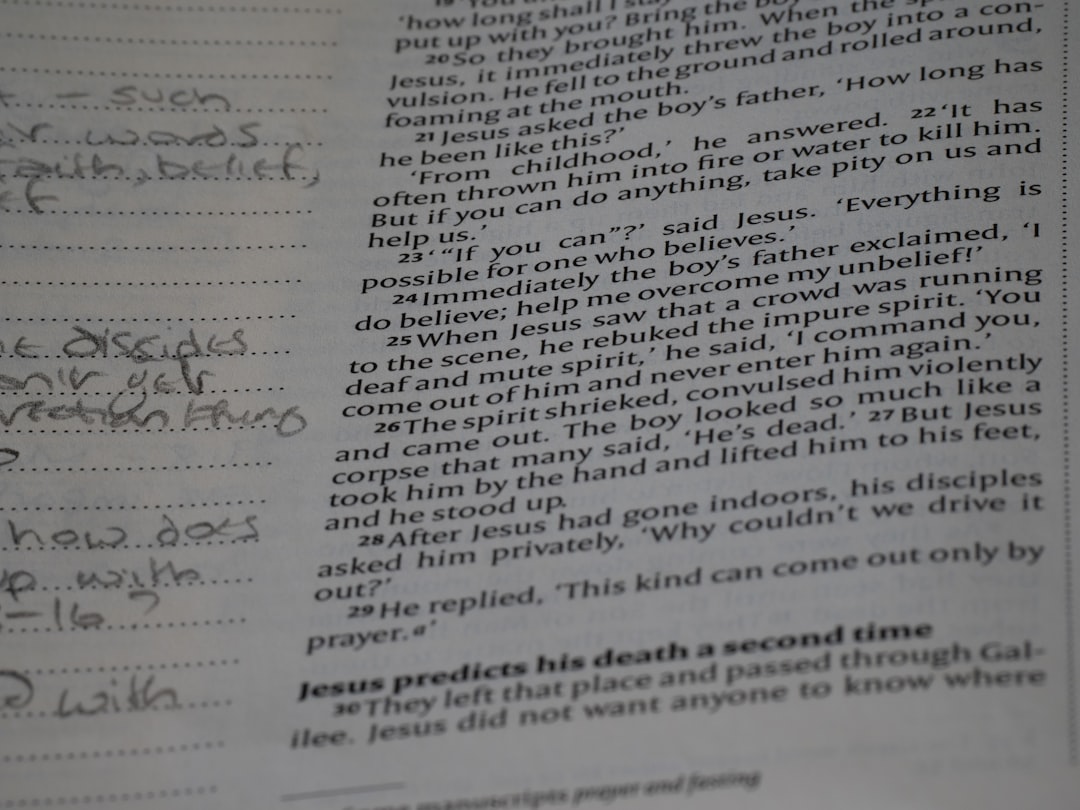 - such
words
faith, belief,
how does
with
-16?
with
19
'how long shall I stay
put up with you? Bring the boy
20 So they brought him. When the
Jesus, it immediately threw the boy into a con-
vulsion. He fell to the ground and rolled around,
foaming at the mouth.
21 Jesus asked the boy's father, 'How long has
he been like this?'
'From childhood,' he answered. 22 'It has
often thrown him into fire or water to kill him.
But if you can do anything, take pity on us and
help us.'
23 '"If you can"?' said Jesus. 'Everything is
possible for one who believes.'
24 Immediately the boy's father exclaimed, 'I
do believe; help me overcome my unbelief!'
25 When Jesus saw that a crowd was running
to the scene, he rebuked the impure spirit. 'You
deaf and mute spirit,' he said, 'I command you,
come out of him and never enter him again.'
26 The spirit shrieked, convulsed him violently
and came out. The boy looked so much like a
corpse that many said, 'He's dead.' 27 But Jesus
took him by the hand and lifted him to his feet,
and he stood up.
28 After Jesus had gone indoors, his disciples
asked him privately, 'Why couldn't we drive it
out?'
29 He replied, 'This kind can come out only by
prayer.a'
Jesus predicts his death a second time
30 They left that place and passed through Gal-
ilee. Jesus did not want anyone to know where
manuscripts prayer and fasting